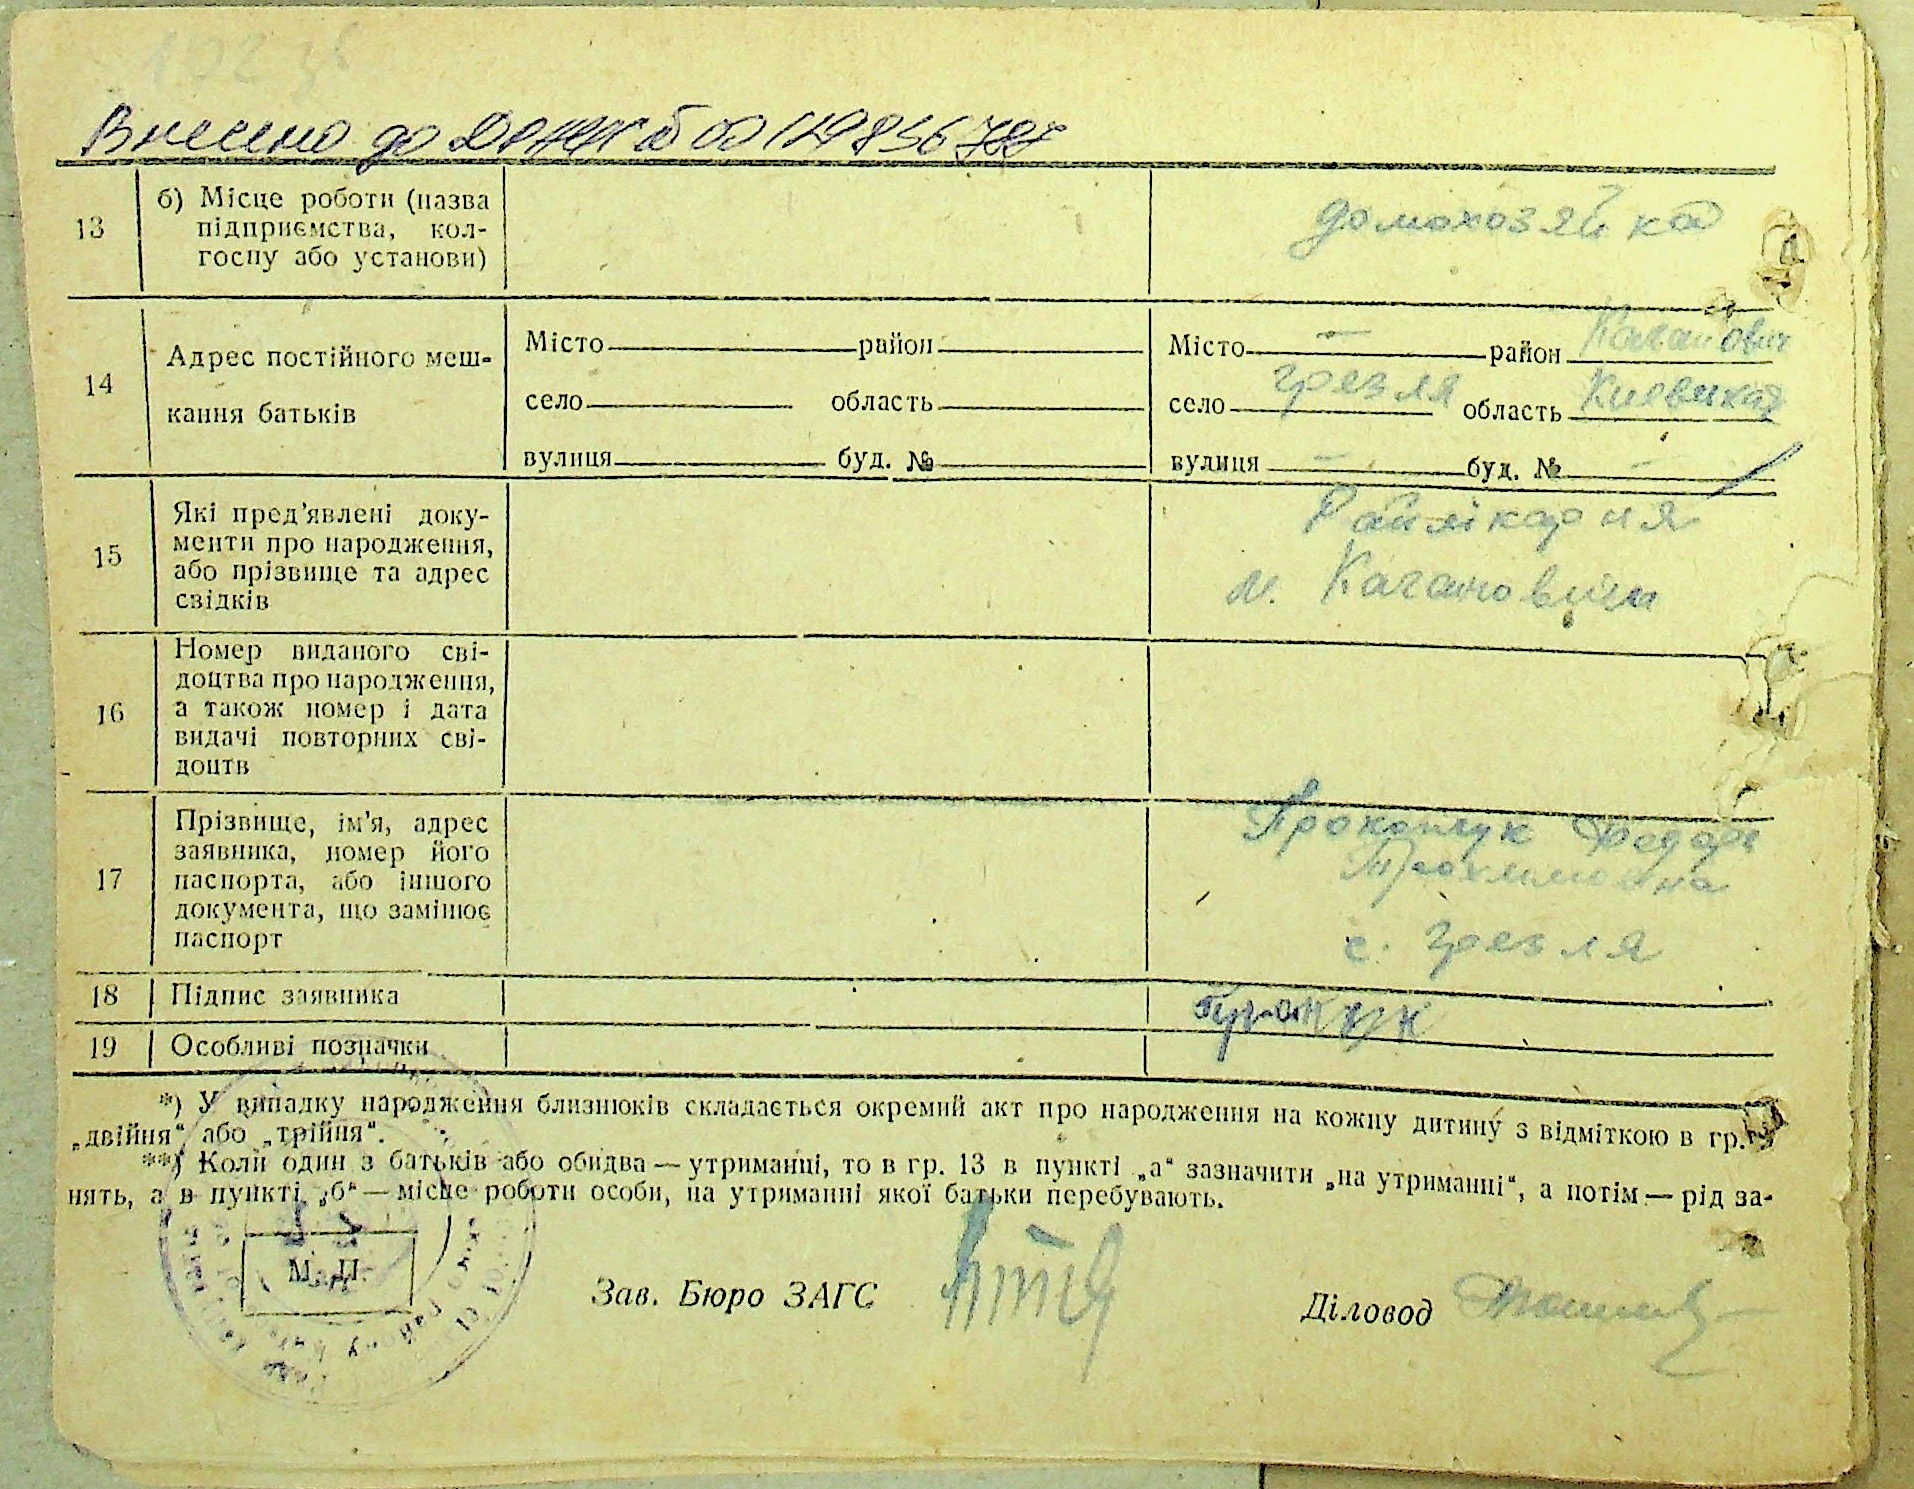 Внесено до
13
б) Місце роботи (назва
підприємства, кол-
госпу або установи)
домохозяйка
14
Адрес постійного меш-
кання батьків
Місто район
село область
вулиця буд. №
Місто — район Каганович
село Грезля область Киевская
вулиця — буд. № —
15
Які пред'явлені доку-
менти про народження,
або прізвище та адрес
свідків
Райлікарня
м. Кагановичи
16
Номер виданого сві-
доцтва про народження,
а також номер і дата
видачі повторних сві-
доцтв
17
Прізвище, ім'я, адрес
заявника, номер його
паспорта, або іншого
документа, що замінює
паспорт
Прокопчук
с. Грезля
18
Підпис заявника
19
Особливі позначки
*) У випадку народження близнюків складається окремий акт про народження на кожну дитину з відміткою в гр.
„двійня“ або „трійня“.
**) Коли один з батьків або обидва — утриманці, то в гр. 13 в пункті „а“ зазначити „на утриманні“, а потім — рід за-
нять, а в пункті „б“ — місце роботи особи, на утриманні якої батьки перебувають.
М. П.
Зав. Бюро ЗАГС
Діловод